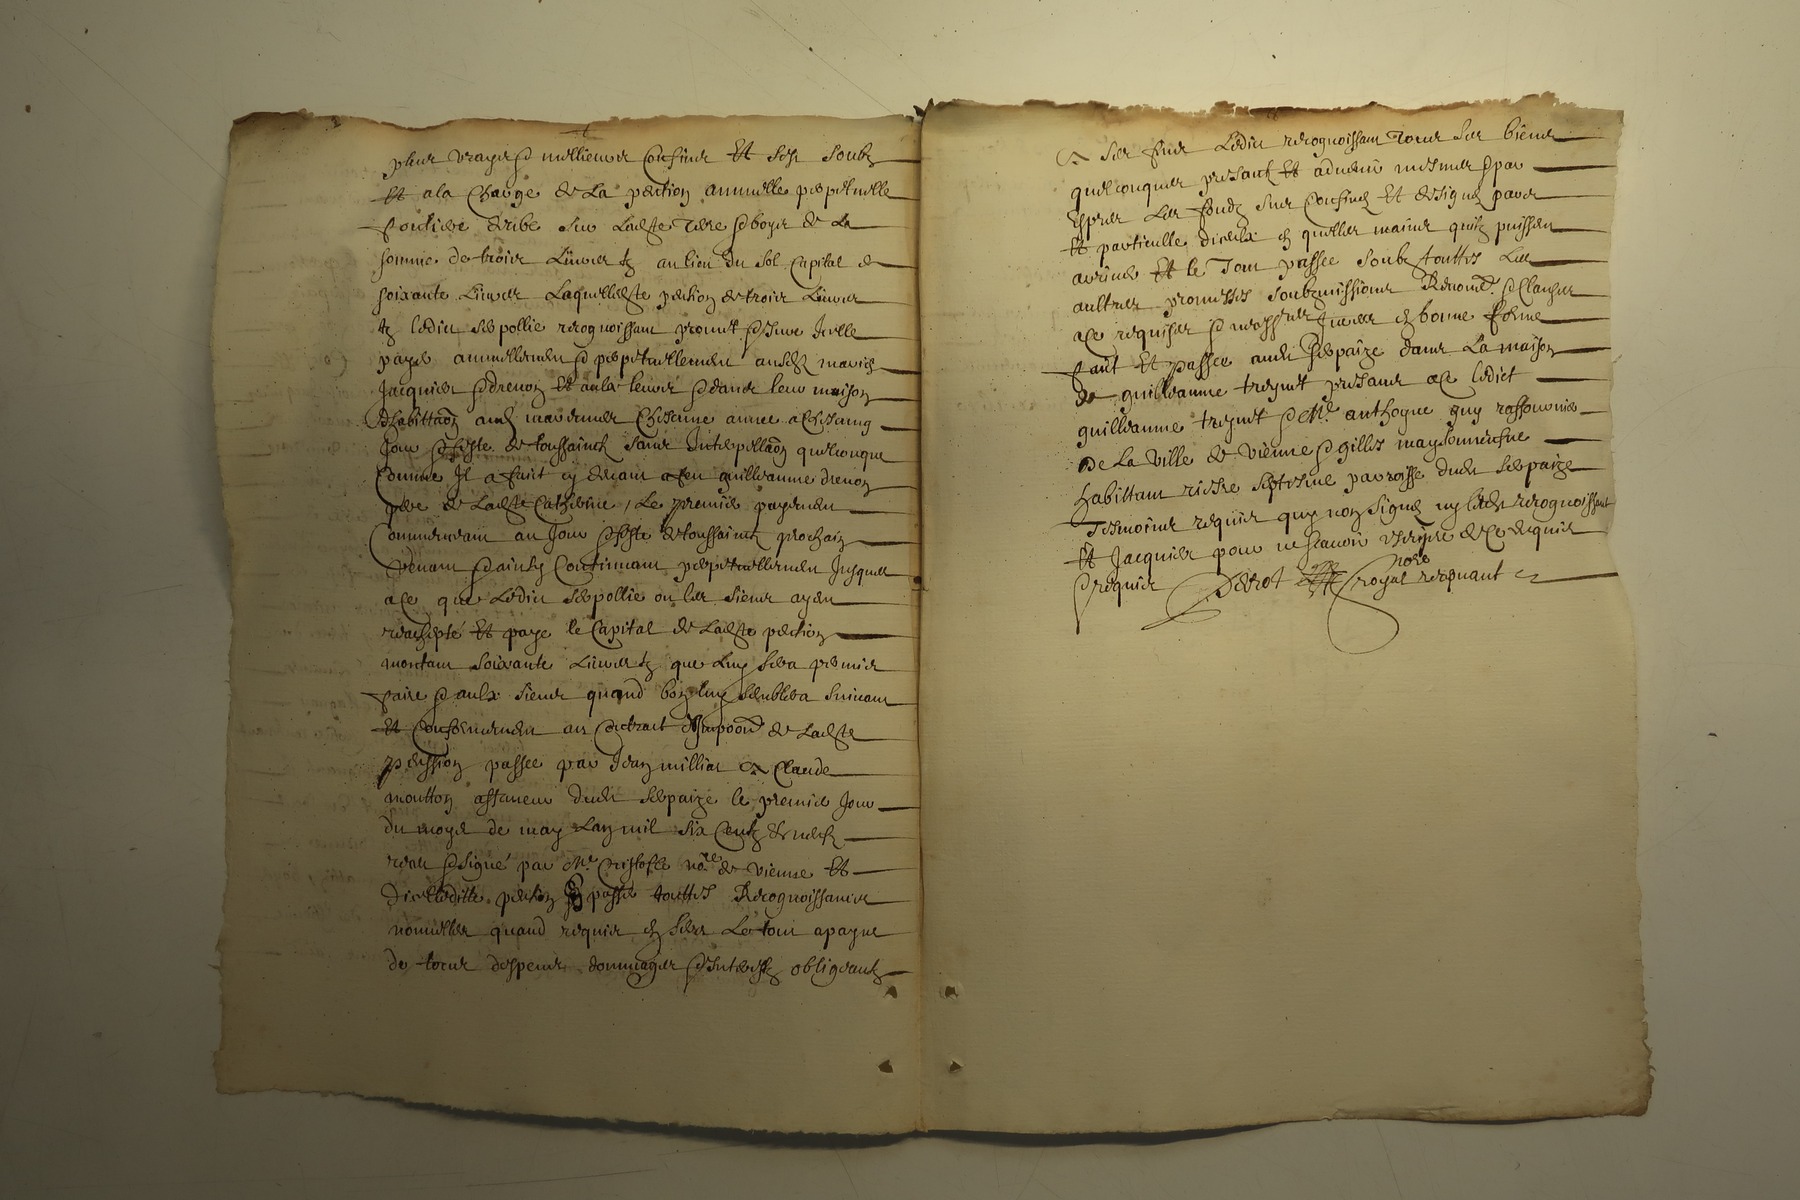 plus vrayes & meilleures Confins Et Ses Soubz
Et a la Charge de La pention annuelle perpetuelle
fonciere deube sur Ladte Terre & boys de La
somme de trois Liuvres tz au lieu du Sol Capital de
soixante Liuvres Laquelle dte pention de troys Liuvres
tz ledict Serpollie recognoissant promet & Jure Icelle
payer annuellement & perpetuellement ausdz mariés
Jacquier & drevon Et aulx leurs & dans leur maison
dhabittaon aud Chescune annee a Chescung
Jour & feste de toussaincts sans Interpellaon quelconque
Comme Il a faict cy devant a feu guilleaume drevon
pere de Ladte Catherine, Le premier payement
Commencant au Jour & feste de toussaincts prochain
venant & ainsy Continuant perpetuellement Jusques
a Ce que Ledict Serpollie ou les siens ayent
rachepté Et paye le Capital de Ladte pention
montant Soixante Liuvres tz que Luy Sera permis
faire & aulx siens quand bon luy Semblera Suivant
Et Conformement au Contract dImpoon de Ladte
penssion passee par Jean milliat a Claude
moutton affaneur dudt Serpaize le premier Jour
du moys de may Lan mil six Centz
receu & signé par Me Cristofle nore de Vienne Et
dicelleditte pention passer touttes Recognoissances
nouvelles quand requis en Sera Le tout a payne
de tous despens dommages & Interestz obligeantz
a Ses fins Ledict recognoissant Tous Ses biens
quelconques presants Et advenir mesmes & par
Expres Les fondz Sus Confinés Et designés pars
Et particulle diceulx en quelles mains quilz puissent
arriver Et le Tout passee Soubz touttes Les
aultres promesses Soubzmissions Renoons & Clauses
a Ce requises & necessres Jurees en bonne forme
faict Et passee audt Serpaize dans La maison
de guilleaume treynet presans a Ce ledict
guilleaume treynet & Me anthoyne guy
de La ville de Vienne & gilles
habittant riere Septesme parroisse dudt Serpaize
Tesmoins requis quy nont Signés ny ledt recognoissant
Et Jacquier pour ne scavoir Escripre de Ce enquis
& requis Perrot nore royal recepvant